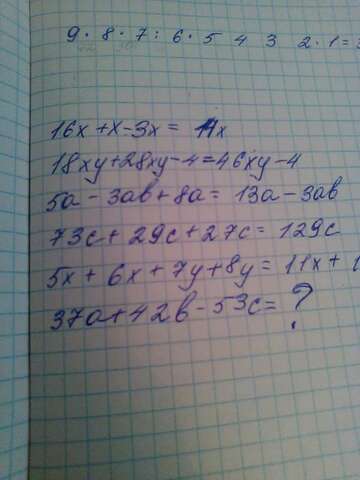 9 · 8 · 7 : 6 · 5 4 3 2 · 1 =
16x + x - 3x = 14x
18xy + 28xy - 4 = 46xy - 4
5a - 3ab + 8a = 13a - 3ab
73c + 29c + 27c = 129c
5x + 6x + 7y + 8y = 11x + 1
37a + 42b - 53c = ?